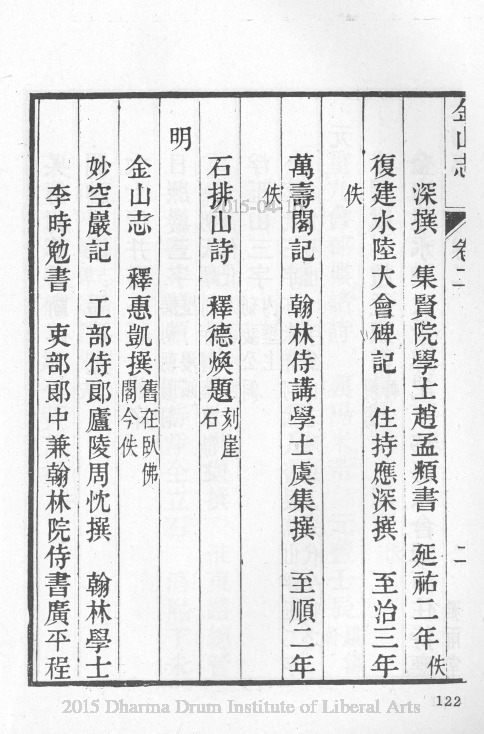 金山志 卷二 二
深撰 集賢院學士趙孟頫書 延祐二年佚
復建水陸大會碑記 住持應深撰 至治三年
佚
萬壽閣記 翰林侍講學士虞集撰 至順二年
佚
石排山詩 釋德煥題刻崖石
明
金山志 釋惠凱撰舊在臥佛閣今佚
妙空巖記 工部侍郎廬陵周忱撰 翰林學士
李時勉書 吏部郎中兼翰林院侍書廣平程
122
2015-04-1
2015 Dharma Drum Institute of Liberal Arts